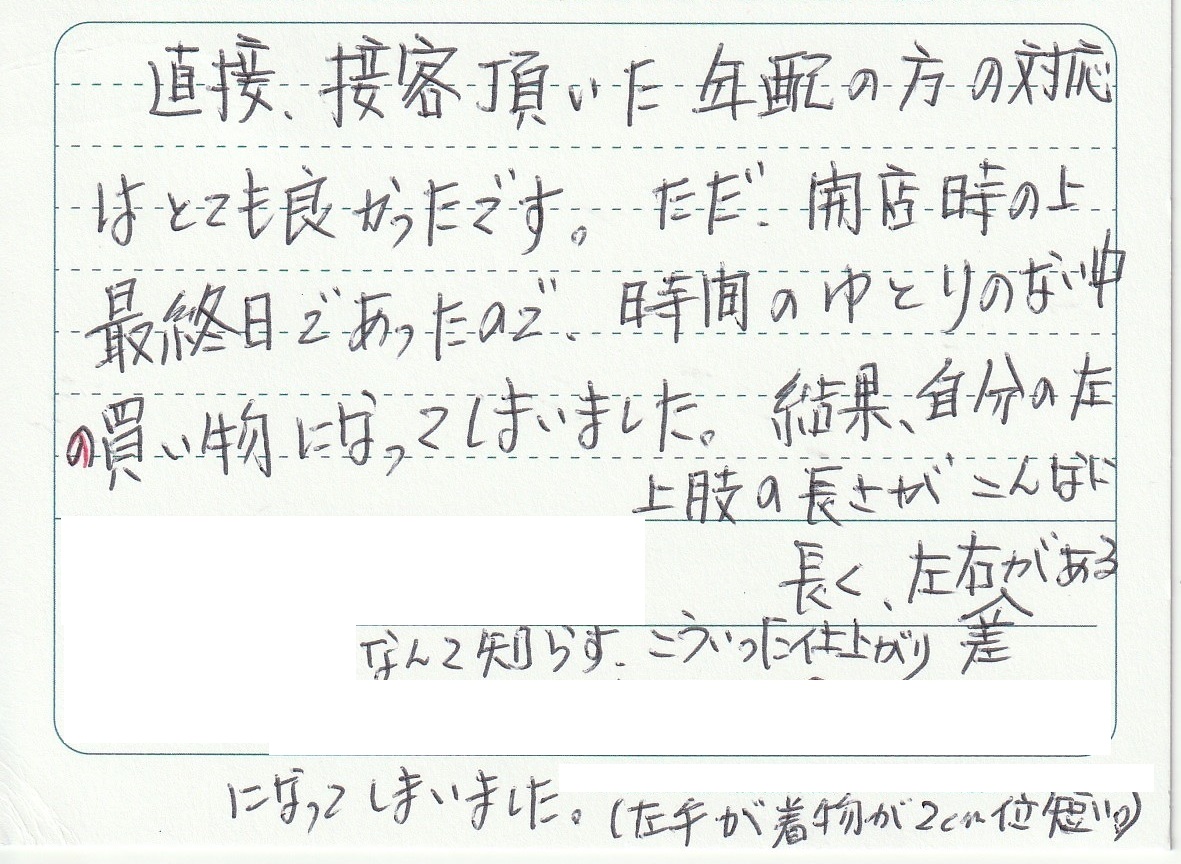 直接、接客頂いた年配の方の対応
はとても良かったです。ただ、開店時の上
最終日であったので、時間のゆとりのない中
の買い物になってしまいました。結果、自分の左
上肢の長さがこんなに
長く、左右がある
差
なんて知らず、こういった仕上がり
になってしまいました。
(左手が着物が2cm位短い。)